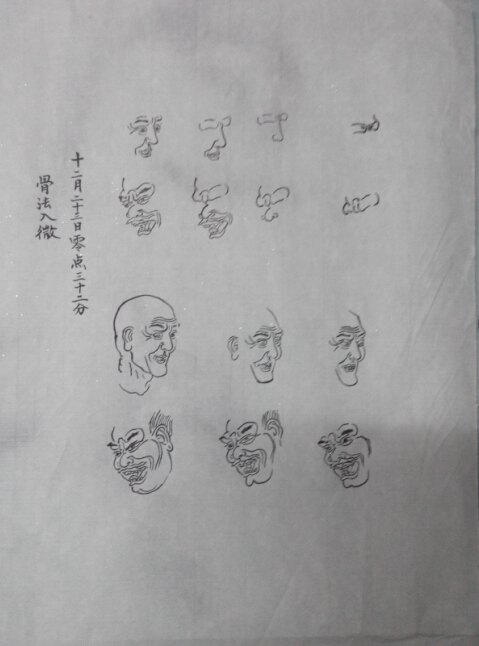 十二月二十三日零点三十二分
骨法入微